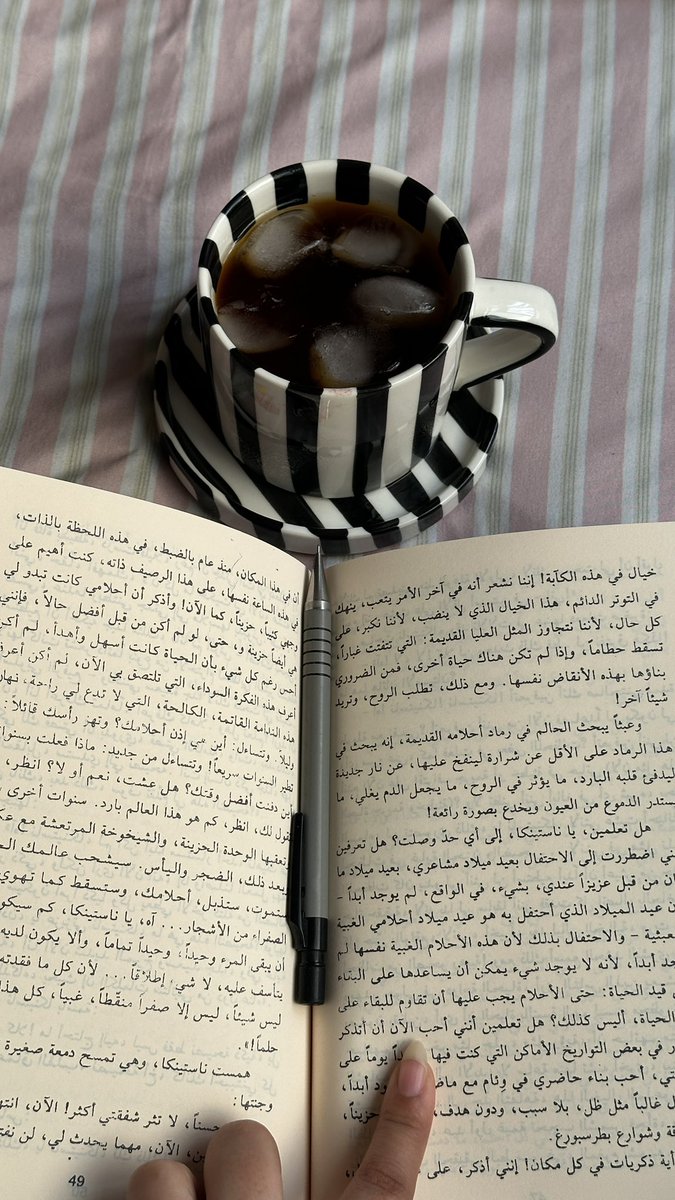 خيال في هذه الكآبة! إننا نشعر أنه في آخر الأمر يتعب، ينهك
في التوتر الدائم، هذا الخيال الذي لا ينضب، لأننا نكبر، على
كل حال، لأننا نتجاوز المثل العليا القديمة: التي تتفتت غباراً،
تسقط حطاماً، وإذا لم تكن هناك حياة أخرى، فمن الضروري
بناؤها بهذه الأنقاض نفسها. ومع ذلك، تطلب الروح، وتريد
شيئاً آخر!
وعبثاً يبحث الحالم في رماد أحلامه القديمة، إنه يبحث في
هذا الرماد على الأقل عن شرارة لينفخ عليها، عن نار جديدة
ليدفئ قلبه البارد، ما يؤثر في الروح، ما يجعل الدم يغلي، ما
يستدر الدموع من العيون ويخدع بصورة رائعة!
هل تعلمين، يا ناستينكا، إلى أي حدّ وصلت؟ هل تعرفين
ني اضطررت إلى الاحتفال بعيد ميلاد مشاعري، بعيد ميلاد ما
ان من قبل عزيزاً عندي، بشيء، في الواقع، لم يوجد أبداً -
ن عيد الميلاد الذي أحتفل به هو عيد ميلاد أحلامي الغبية
عبثية - والاحتفال بذلك لأن هذه الأحلام الغبية نفسها لم
جد أبداً، لأنه لا يوجد شيء يمكن أن يساعدها على البقاء
ى قيد الحياة: حتى الأحلام يجب عليها أن تقاوم للبقاء على
الحياة، أليس كذلك؟ هل تعلمين أنني أحب الآن أن أتذكر
ر في بعض التواريخ الأماكن التي كنت فيها يوماً على
تي، أحب بناء حاضري في وئام مع ود أبداً،
ل غالباً مثل ظل، بلا سبب، ودون هدف، حزيناً،
قة وشوارع بطرسبورغ.
أية ذكريات في كل مكان! إنني أذكر، على
أن في هذا المكان، منذ عام بالضبط، في هذه اللحظة بالذات،
في هذه الساعة نفسها، على هذا الرصيف ذاته، كنت أهيم على
وجهي كئيباً، حزيناً، كما الآن! وأذكر أن أحلامي كانت تبدو لي
هي أيضاً حزينة و، حتى، لو لم أكن من قبل أفضل حالاً، فإنني
أحس رغم كل شيء بأن الحياة كانت أسهل وأهدأ، لم أكن
أعرف هذه الفكرة السوداء، التي تلتصق بي الآن، لم أكن أعرف
هذه الندامة القاتمة، الكالحة، التي لا تدع لي راحة، نهار
وليلا. وتتساءل: أين هي إذن أحلامك؟ وتهز رأسك قائلاً:
تطير السنوات سريعاً! وتتساءل من جديد: ماذا فعلت بسنوا
أين دفنت أفضل وقتك؟ هل عشت، نعم أو لا؟ انظر،
نقول لك، انظر، كم هو هذا العالم بارد. سنوات أخرى
وتعقبها الوحدة الحزينة، والشيخوخة المرتعشة مع عك
وبعد ذلك، الضجر واليأس. سيشحب عالمك ال
ستموت، ستذبل، أحلامك، وستسقط كما تهوي
الصفراء من الأشجار... آه، يا ناستينكا، كم سيكو
أن يبقى المرء وحيداً، وحيداً تماماً، وألا يكون لديه
يتأسف عليه، لا شيء إطلاقاً... لأن كل ما فقدته
ليس شيئاً، ليس إلا صفراً منقّطاً، غبياً، كل هذا
حلماً!».
همست ناستينكا، وهي تمسح دمعة صغيرة
وجنتها:
حسناً، لا تثر شفقتي أكثر! الآن، انته
ين، الآن، مهما يحدث لي، لن نفت
49